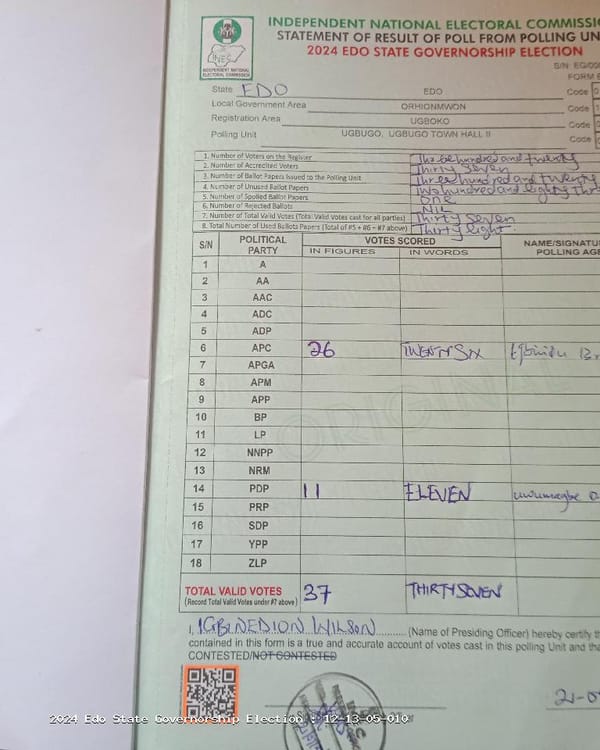 INDEPENDENT NATIONAL ELECTORAL COMMISSIO
STATEMENT OF RESULT OF POLL FROM POLLING UN
2024 EDO STATE GOVERNORSHIP ELECTION
INEC
INDEPENDENT NATIONAL
ELECTORAL COMMISSION
S/N EG/00
FORM E
State EDO EDO Code 0
Local Government Area ORHIONMWON Code 1
Registration Area UGBOKO Code 0
Polling Unit UGBUGO, UGBUGO TOWN HALL II Code 0
1. Number of Voters on the Register hundred and twenty
2. Number of Accredited Voters Thirty Seven
3. Number of Ballot Papers Issued to the Polling Unit Three hundred and twenty
4. Number of Unused Ballot Papers hundred and eighty
5. Number of Spoiled Ballot Papers One
6. Number of Rejected Ballots NIL
7. Number of Total Valid Votes (Total Valid Votes cast for all parties) Thirty Seven
8. Total Number of Used Ballots Papers (Total of #5 + #6 + #7 above) Thirty Eight
S/N POLITICAL PARTY VOTES SCORED NAME/SIGNATU
IN FIGURES IN WORDS POLLING AGE
1 A
2 AA
3 AAC
4 ADC
5 ADP
6 APC 26 TWENTY SIX
7 APGA
8 APM
9 APP
10 BP
11 LP
12 NNPP
13 NRM
14 PDP 11 ELEVEN
15 PRP
16 SDP
17 YPP
18 ZLP
TOTAL VALID VOTES 37 THIRTY SEVEN
(Record Total Valid Votes under #7 above)
I, IGBINEDION WILSON (Name of Presiding Officer) hereby certify th
contained in this form is a true and accurate account of votes cast in this polling Unit and tha
CONTESTED/NOT CONTESTED
2024 Edo State Governorship Election : 12-13-05-010
21-0